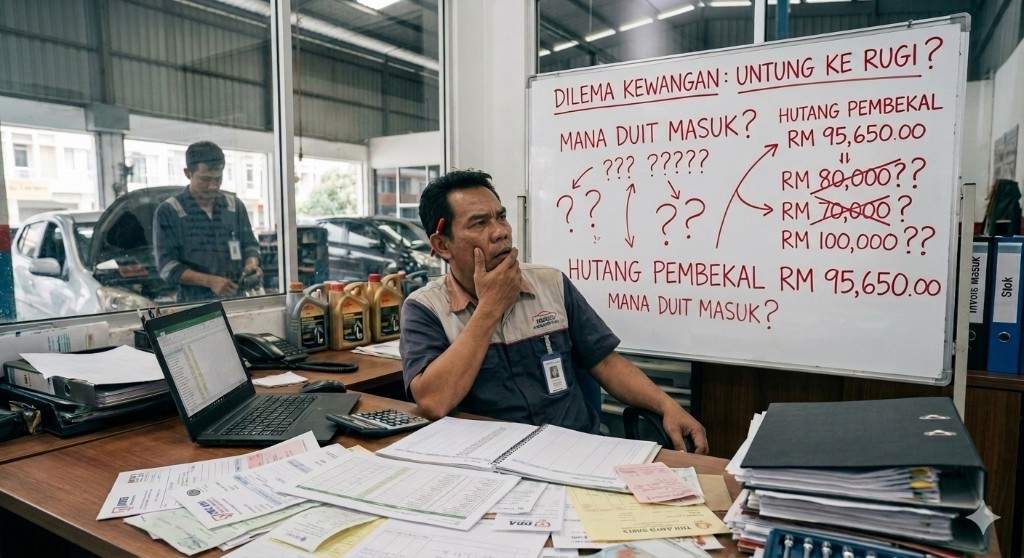 DILEMA KEWANGAN: UNTUNG KE RUGI?
MANA DUIT MASUK?
??? ?????
? ?
? ?
HUTANG PEMBEKAL
RM 95,650.00
RM 80,000??
RM 70,000?
RM 100,000??
HUTANG PEMBEKAL RM 95,650.00
MANA DUIT MASUK?
Stok